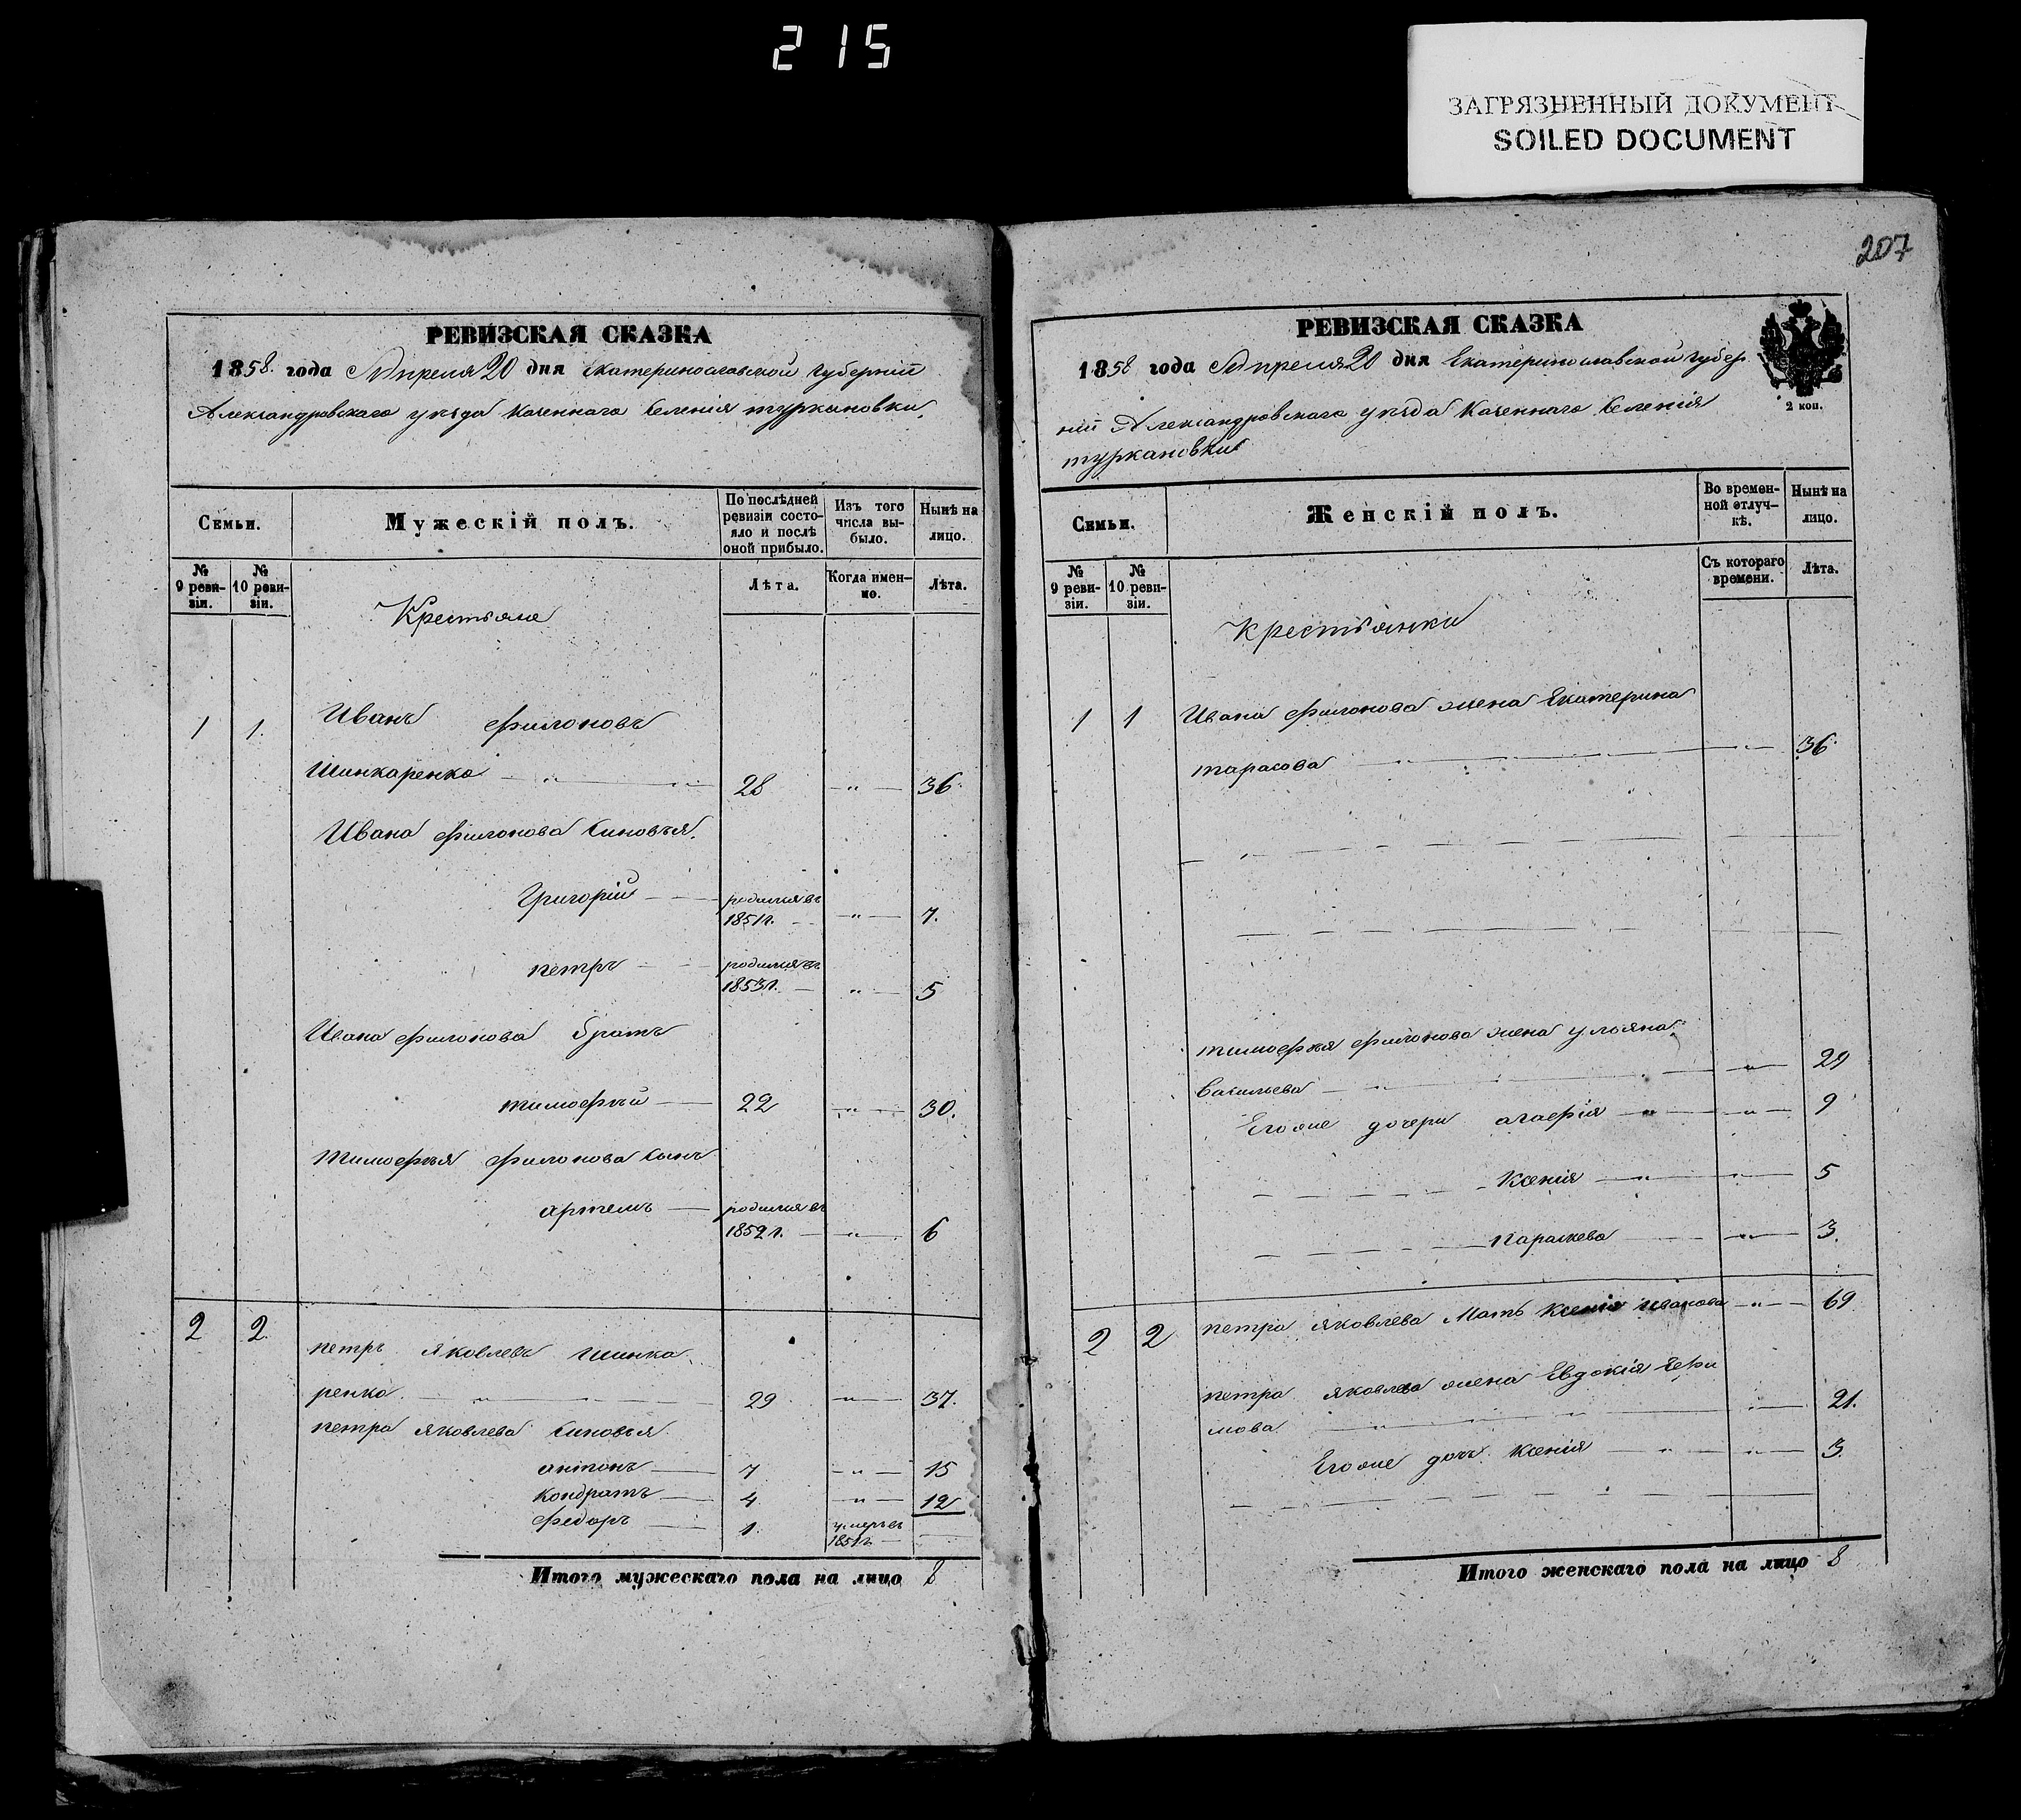 215
ЗАГРЯЗНЕННЫЙ ДОКУМЕНТ
SOILED DOCUMENT
РЕВИЗСКАЯ СКАЗКА
1858. года Апреля 20 дня Екатеринославской губернии
Александровскаго уезда казеннаго селенія туркановки.
Семьи.
Мужескій полъ.
По послѣдней ревизіи состо-
яло и послѣ оной прибыло.
Изъ того числа вы-
было.
Нынѣ на лицо.
№ 9 реви-
зіи.
№ 10 реви-
зіи.
Лѣта.
Когда имен-
но.
Лѣта.
Крестьяне
1 1. Иванъ филоновъ
Шинкаренко — „ — „ 28 — „ — 36.
Ивана филонова синовья.
Григорій — родился въ
1851 г. — „ — 7.
петръ — родился въ
1853 г. — „ — 5
Ивана филонова братъ
тимофей — 22 — „ — 30.
Тимофея филонова сынъ
артемъ — родился въ
1852 г. — „ — 6
2 2. петръ яковлевъ шинка
ренко. — „ — 29 — „ — 37.
петра яковлева синовья
антонъ — 7 — „ — 15
кондратъ — 4 — „ — 12
федоръ — 1. умеръ въ
1851 г. —
Итого мужескаго пола на лицо 8
207
РЕВИЗСКАЯ СКАЗКА
1858 года Апреля 20 дня Екатеринославской губер
нии Александровскаго уезда казеннаго селенія
туркановки
2 коп.
Семьи.
Женскій полъ.
Во времен-
ной отлуч-
кѣ.
Нынѣ на лицо.
№ 9 реви-
зіи.
№ 10 реви-
зіи.
Съ котораго времени.
Лѣта.
крестьянки
1 1 Ивана филонова жена Екатерина
тарасова — „ — 36
тимофея филонова жена ульяна
васильева — „ — „ — 29
Егоже дочери агафія — „ — „ — 9
ксенія — „ — „ — 5
параскева — „ — 3.
2 2 петра яковлева мать ксенія иванова — „ — 69
петра яковлева жена Евдокія Ефи
мова. — 21.
Егоже дочь ксенія — „ — „ — 3.
Итого женскаго пола на лицо 8